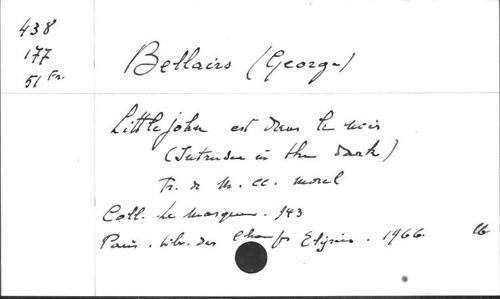 438
177
51 Fr.
Bellairs (George)
Littlejohn est dans le noir
(Intruder in the dark)
Tr. de M. Cl. Morel
Coll. Le Masque. 943
Paris. Libr. des Champs Elysées. 1966.